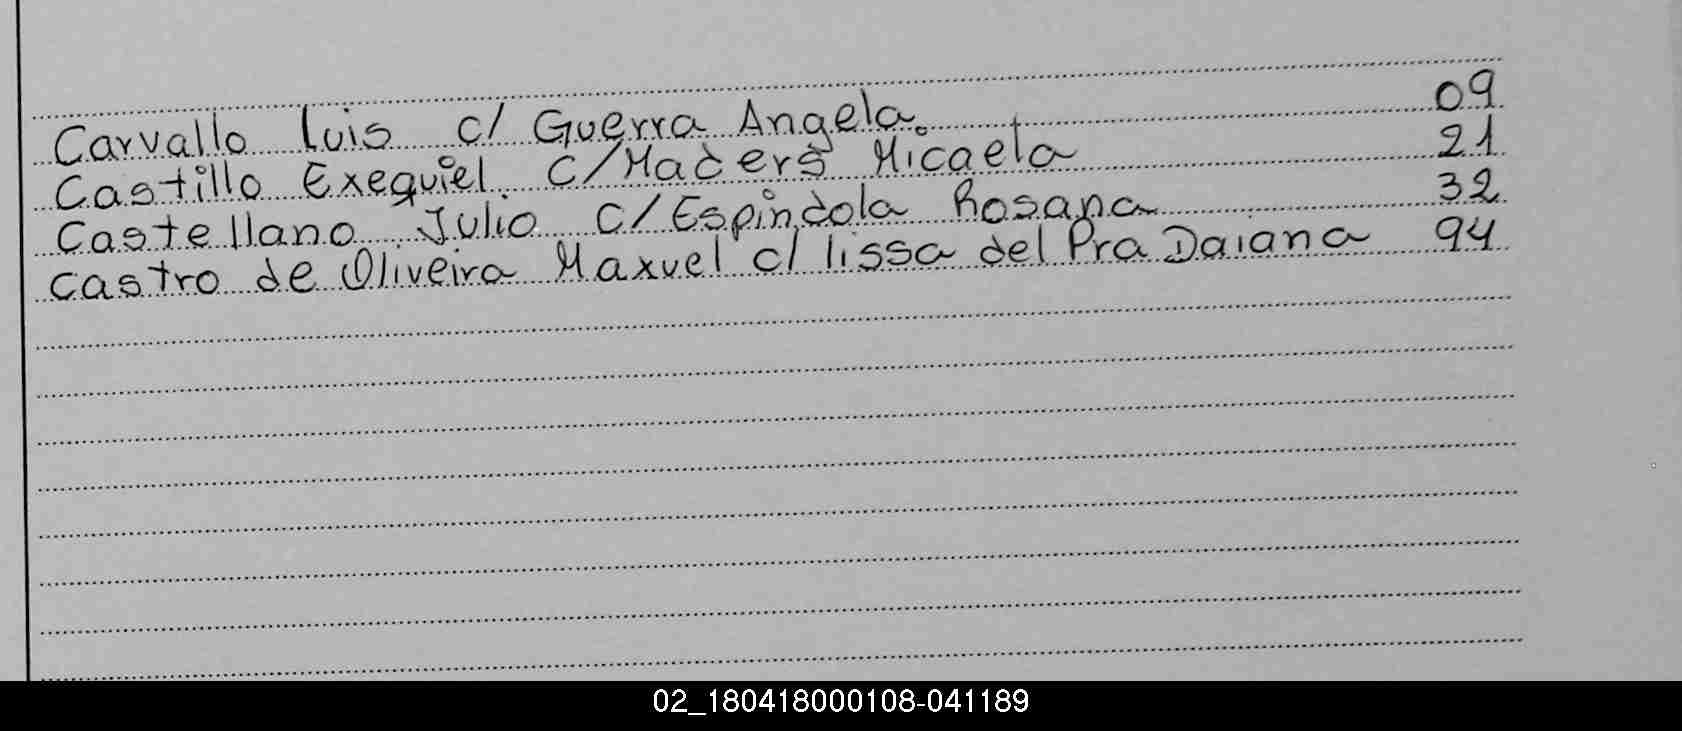 Carvallo Luis c/ Guerra Angela.
Castillo Exequiel c/ Maders Micaela
Castellano Julio c/ Espindola Rosana
Castro de Oliveira Maxuel c/ lissa del Pra Daiana
09
21
32
94
02_180418000108-041189